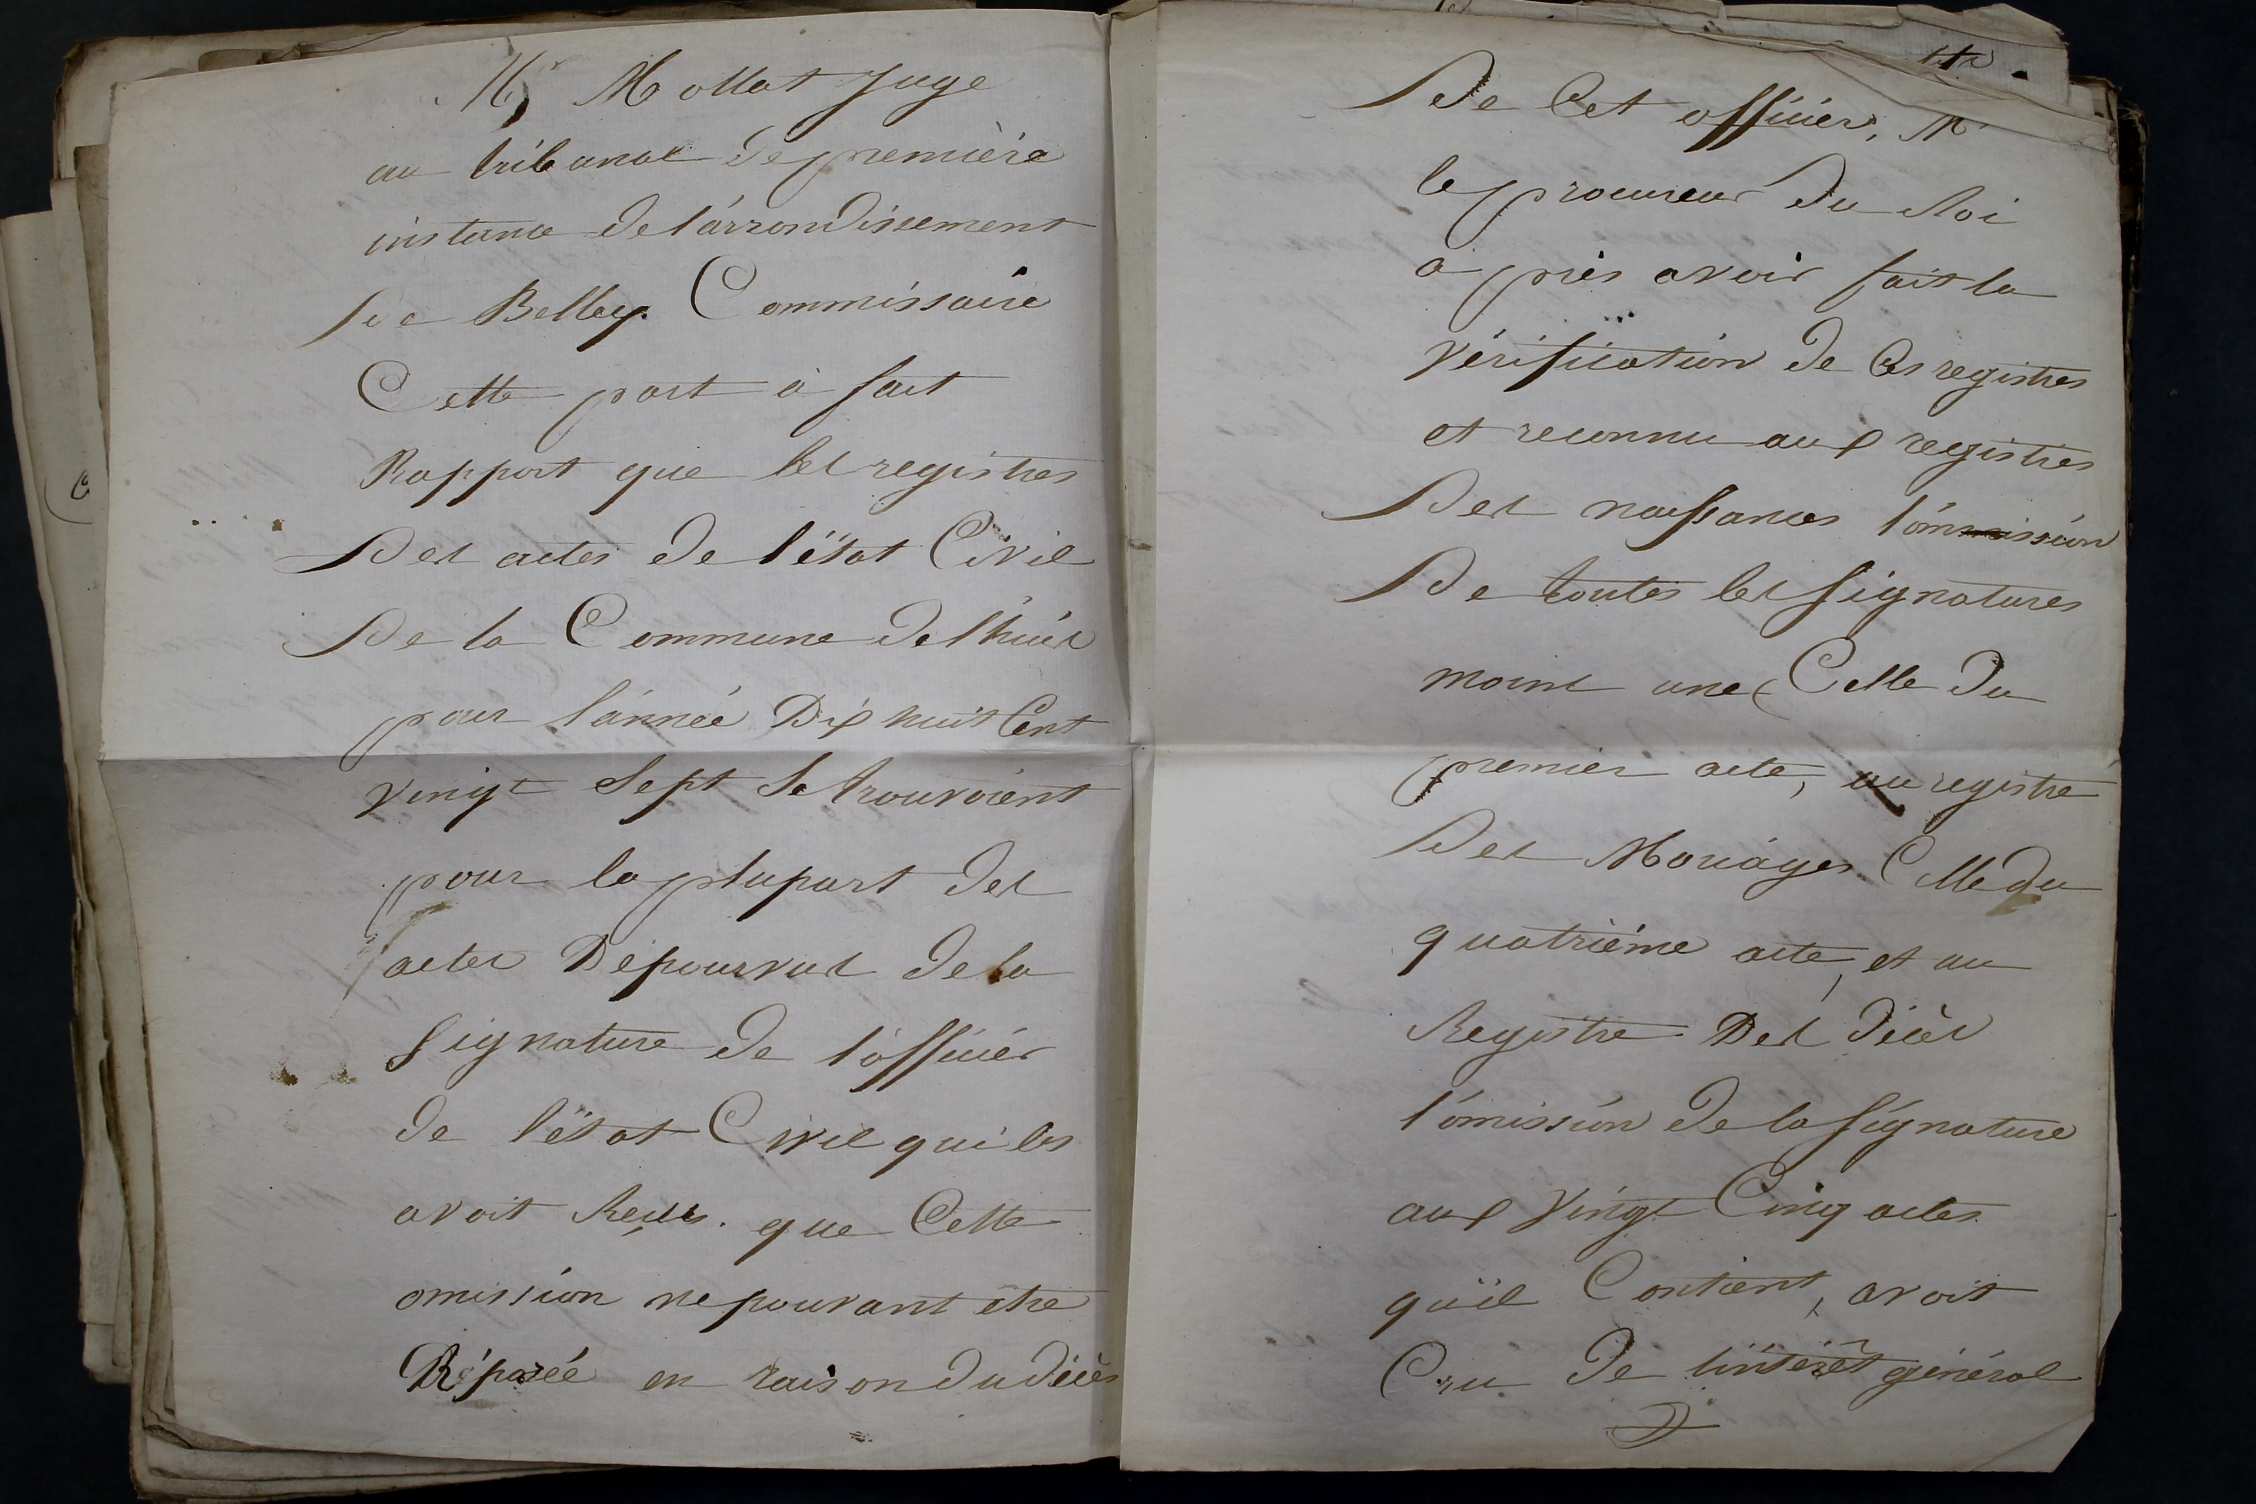 Mr Mollat Juge
au tribunal de première
instance de l'árrondissement
De Belley. Commissaire
Cette part à fait
Rapport que les registres
Des actes de l'état Civil
De la Commune de lhuis
pour l'ánnée Dix huit Cent
vingt Sept Se trouvoient
pour la plupart des
actes Dépourvus de la
Signature de l'officier
de l'état Civil qui les
avoit Reçus. que Cette
omission ne pouvant être
Réparée en raison du décès
De Cet officier, Mr
le procureur Du Roi
après avoir fait la
vérification de Ces registres
et reconnu aux registres
Des naissances l'ómission
De toutes les signatures
moins une Celle du
premier acte, au registre
Des Mariages Celle du
quatrième acte, et au
Registre Des décès
l'omission de la signature
aux vingt Cinq actes
qu'il Contient, avoit
Cru de l'intérêt général